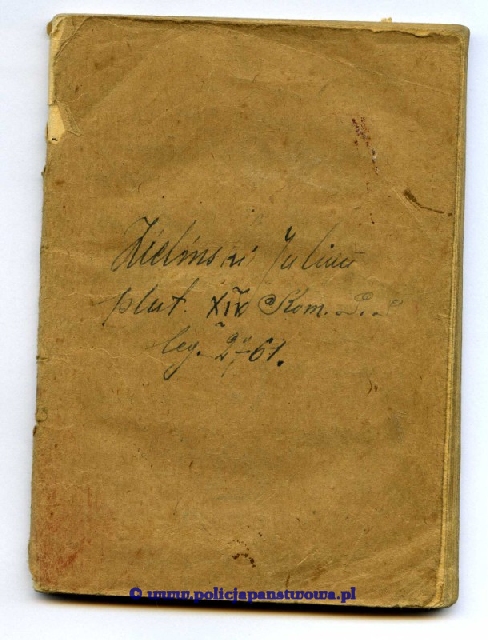 Zieliński Juliusz
plut. XIV Kom. „D"
leg. 2"-61.
© www.policjapanstwowa.pl